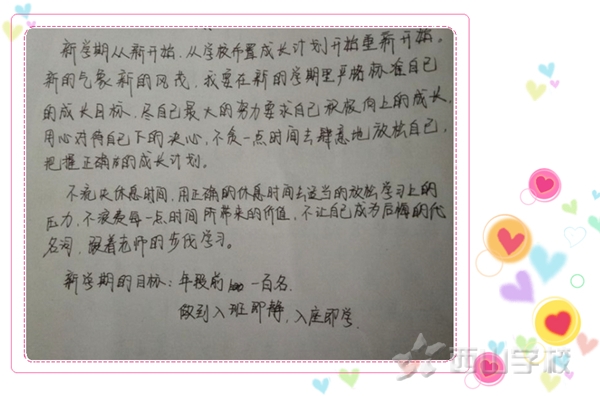 新学期从新开始，从学校布置成长计划开始重新开始。
新的气象新的风茂，我要在新的学期里严格标准自己
的成长目标，尽自己最大的努力要求自己积极向上的成长，
用心对待自己下的决心，不负一点时间去肆意地放松自己，
把握正确的成长计划。
不流失休息时间，用正确的休息时间去适当的放松学习上的
压力，不浪费每一点时间所带来的价值，不让自己成为后悔的代
名词，跟着老师的步伐学习。
新学期的目标：年级前一百名.
做到入班即静，入座即学.
西山学校